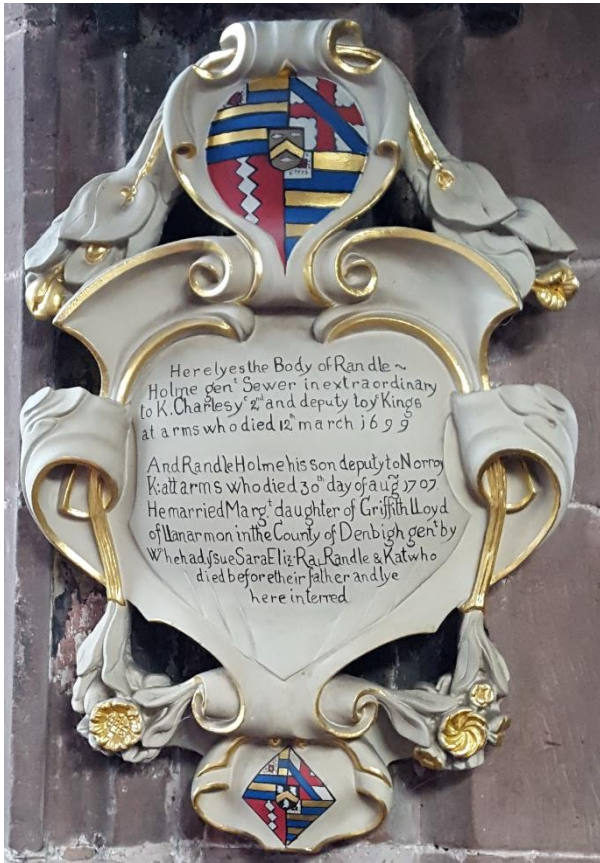 Here lyes the Body of Randle ~
Holme genᵗ Sewer in extraordinary
to K. Charles yᵉ 2ᵈ and deputy to yᵉ Kings
at arms who died 12ᵗʰ march 1699
And Randle Holme his son deputy to Norroy
K: att arms who died 30ᵗʰ day of augᵗ 1707
He married Margᵗ daughter of Griffith Lloyd
of Llanarmon in the County of Denbigh genᵗ by
Wʰ he had ysue Sara Eliz· Ra: Randle & Kat who
died before their father and lye
here interred